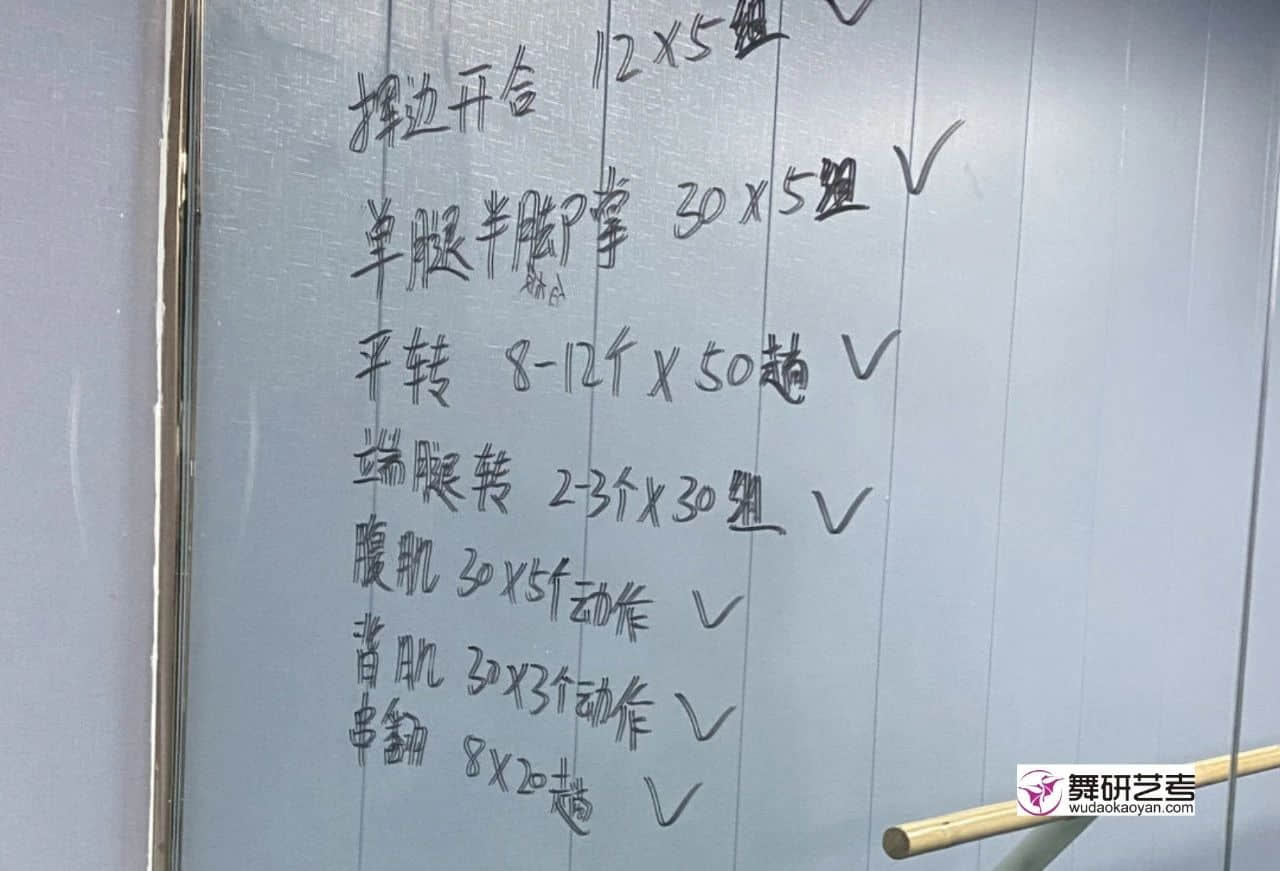 挥边开合 12×5组 ✓
单腿半脚掌 30×5组 ✓
平转 8-12个×50趟 ✓
端腿转 2-3个×30组 ✓
腹肌 30×5个动作 ✓
背肌 30×3个动作 ✓
串翻 8×20趟 ✓
舞研艺考
wudaokaoyan.com